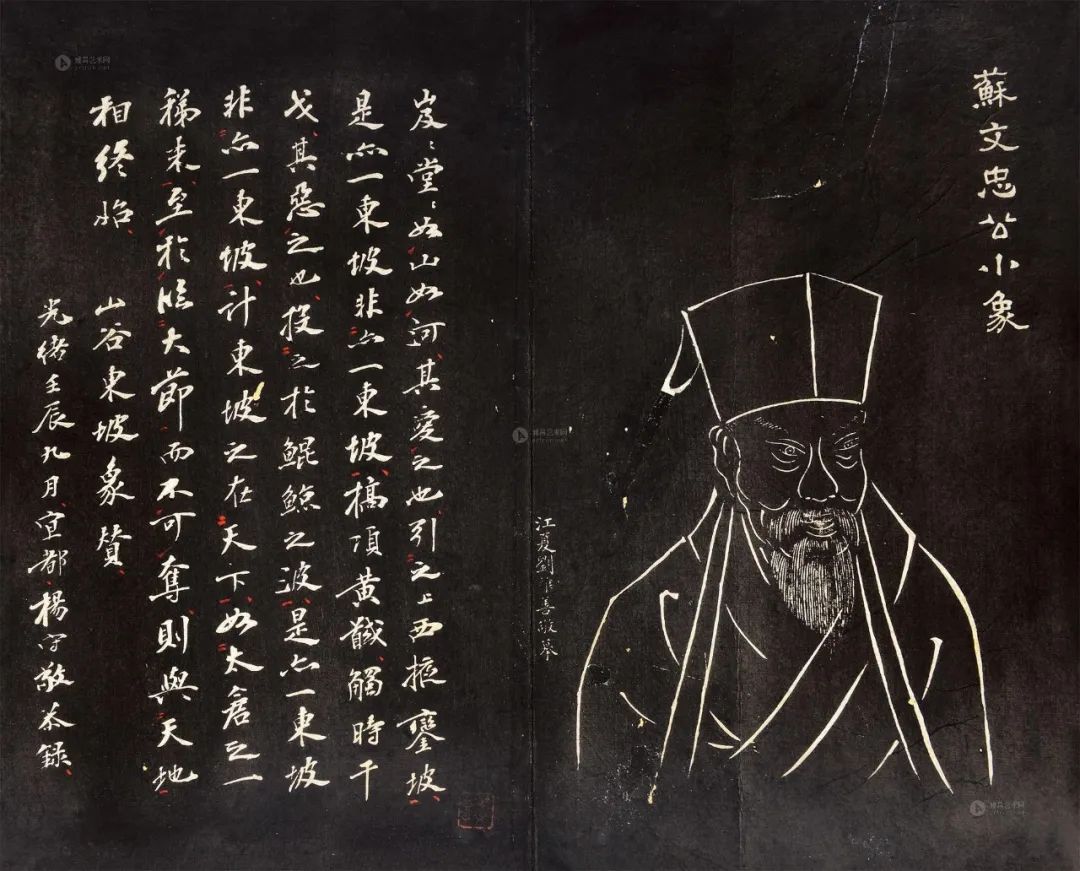 蘇文忠公小象
江夏劉善敬摹
岌〻堂〻如山如河其愛之也引之上西掖鑾坡
是亦一東坡非亦一東坡槁項黃馘觸時干
戈其惡之也投之於鯤鯨之波是亦一東坡
非亦一東坡計東坡之在天下如太倉之一
稊米至於臨大節而不可奪則與天地
相終始 山谷東坡象贊
光緒壬辰九月宜都楊守敬恭錄